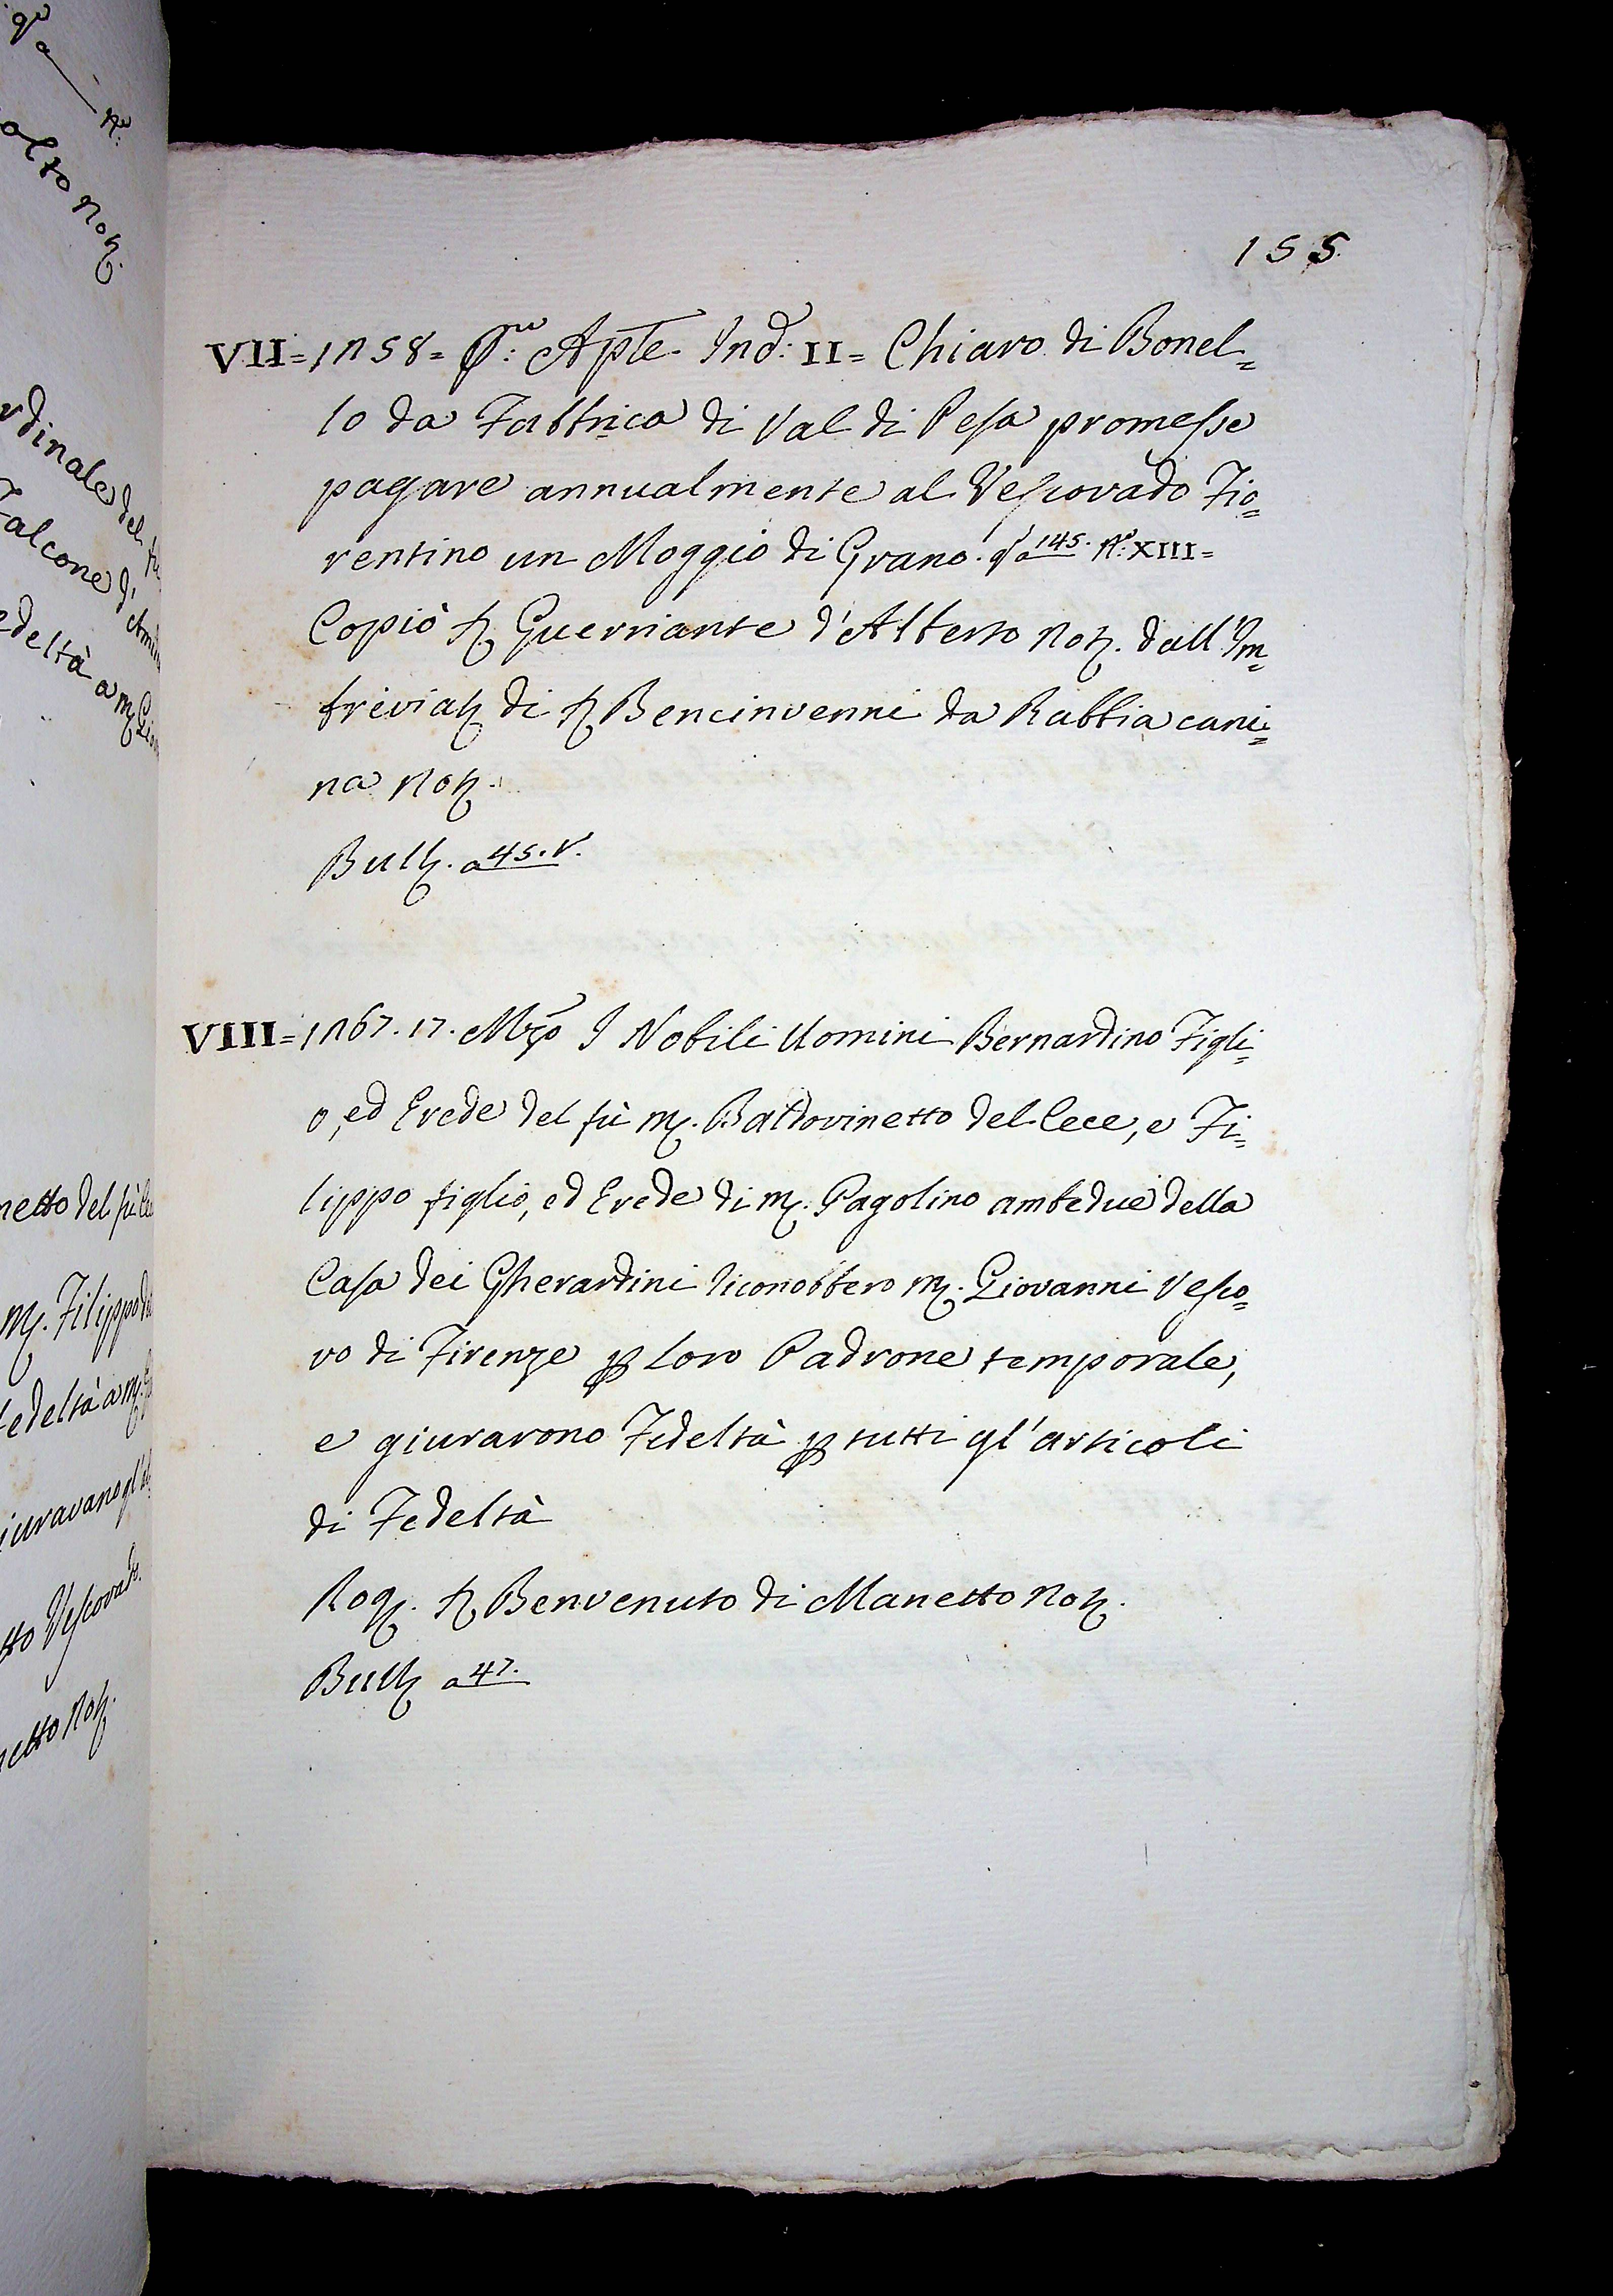 155.
VII = 1258 = P.mo Aple. Ind: II = Chiaro di Bonel=
lo da Fabbrica di Val di Pesa promesse
pagare annualmente al Vescovado Fio=
rentino un Moggio di Grano. Va 145. N.o XIII =
Copiò S. Guerriante d'Alberto Not. dall'Im=
breviat. di S. Bencinvenni da Rabbia cani=
na Not.
Bull. a 45. v.
VIII = 1267. 17. Mzo I Nobili Uomini Bernardino Figli=
o, ed Erede del fù M. Baldovinetto del Cece, e Fi=
lippo figlio, ed Erede di M. Pagolino ambedue della
Casa dei Gherardini riconobbero M. Giovanni Vesco=
vo di Firenze p Loro Padrone temporale,
e giurarono Fedeltà p tutti gl'articoli
di Fedeltà
Rog. S. Benvenuto di Manetto Not.
Bull. a 47.
alto Not.
rdinale del
Falcone d'
edeltà a M. Gio
netto del fù
M. Filippo
fedeltà a M.
iuravane gl'
tto Vescovado.
netto Not.